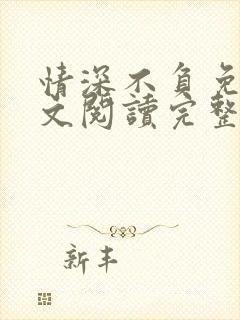 情深不負免
文閱讀完整
新丰